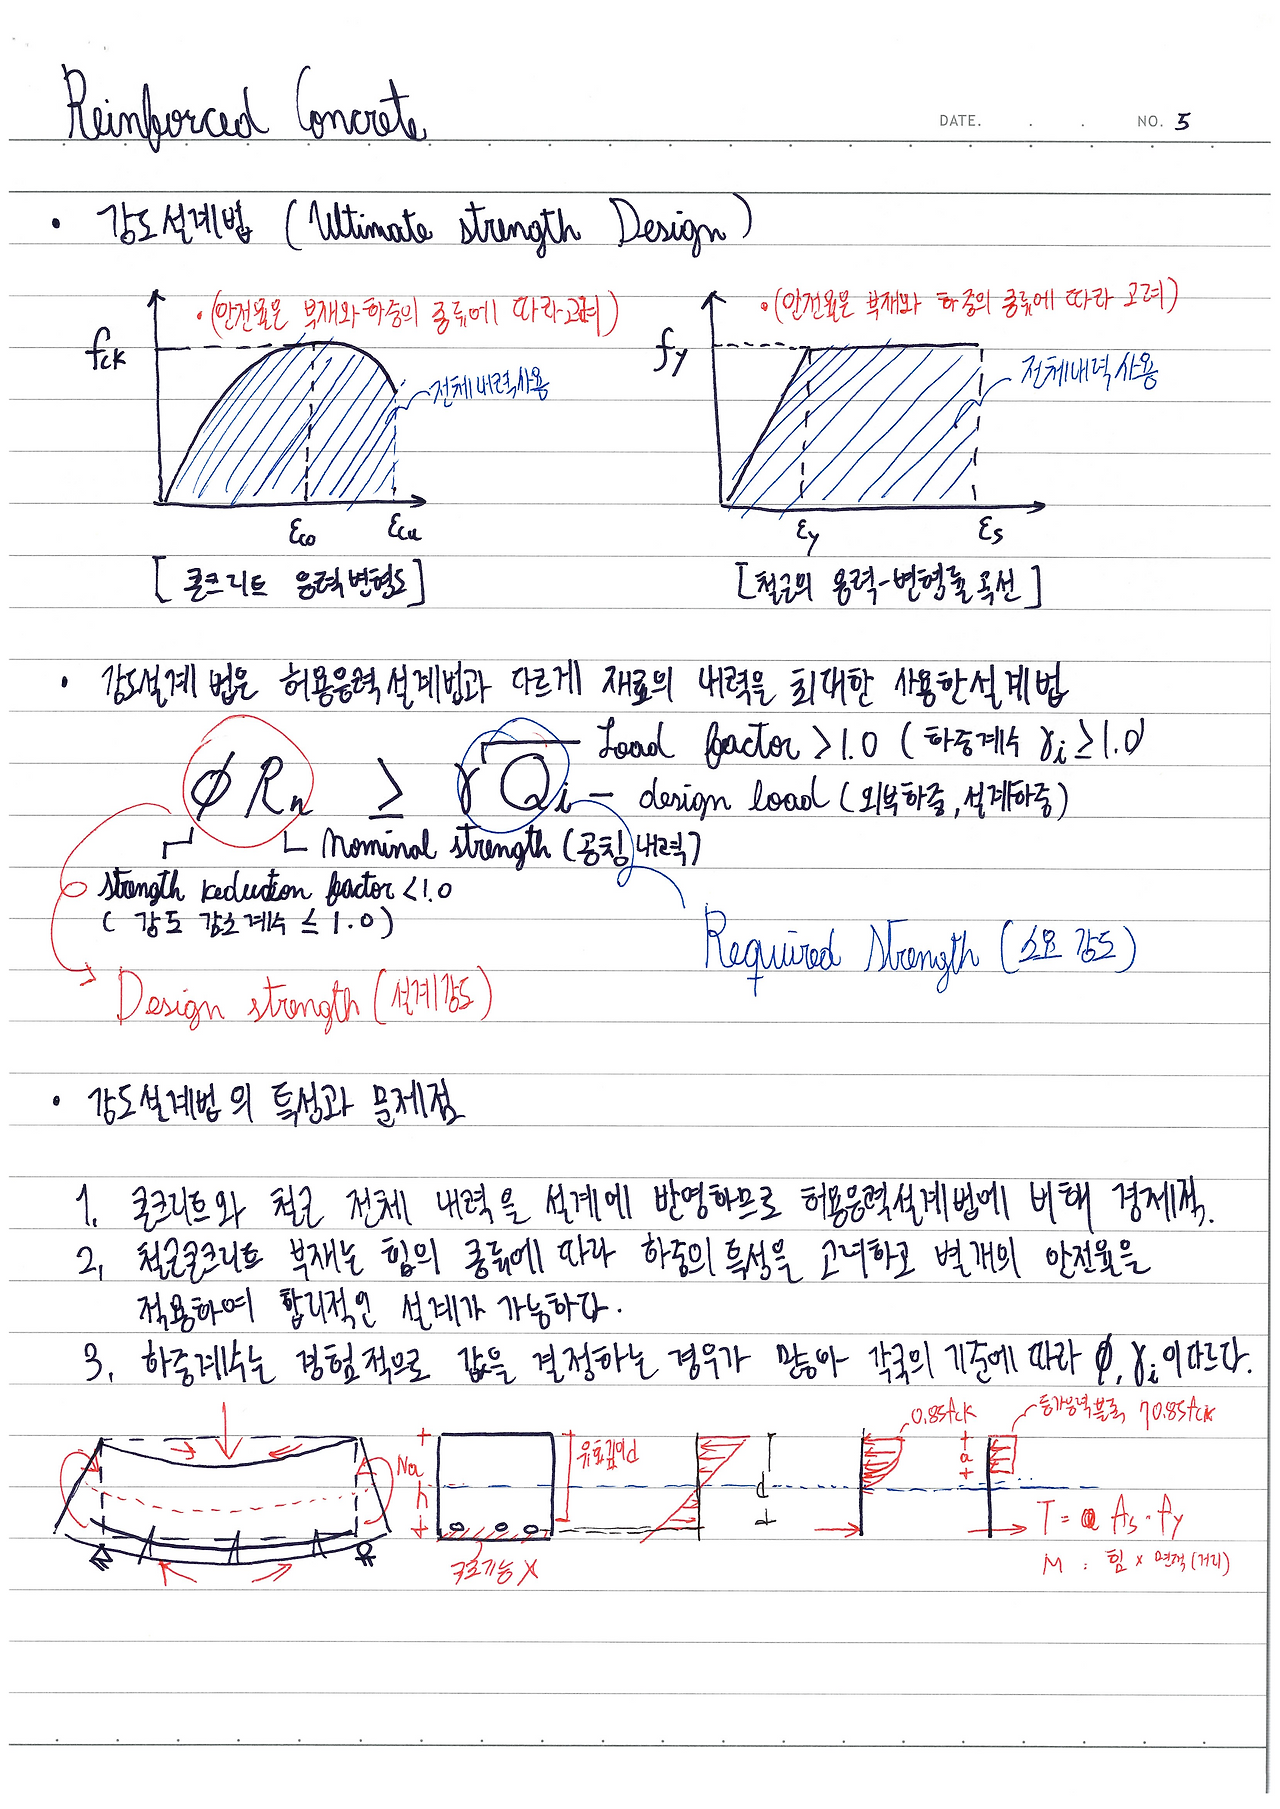 Reinforced Concrete
DATE. . . NO. 5
• 강도설계법 (Ultimate strength Design)
•(안전율은 부재와 하중의 종류에 따라 고려)
•(안전율은 부재와 하중의 종류에 따라 고려)
fck
전체내력사용
fy
전체내력사용
εco εcu
εy εs
[콘크리트 응력변형도]
[철근의 응력-변형률 곡선]
• 강도설계법은 허용응력설계법과 다르게 재료의 내력을 최대한 사용한설계법
Load factor > 1.0 (하중계수 γi ≥ 1.0
φRn ≥ γQi
design load (외부하중, 설계하중)
Nominal strength (공칭내력)
strength reduction factor < 1.0
(강도 감소계수 ≤ 1.0)
Required strength (소요 강도)
Design strength (설계강도)
• 강도설계법의 특성과 문제점
1. 콘크리트와 철근 전체 내력을 설계에 반영하므로 허용응력설계법에 비해 경제적.
2. 철근콘크리트 부재는 힘의 종류에 따라 하중의 특성을 고려하고 별개의 안전율을
적용하여 합리적인 설계가 가능하다.
3. 하중계수는 경험적으로 값을 결정하는 경우가 많아 각국의 기준에 따라 φ, γi이 다르다.
0.85fck
등가응력블록 0.85fck
유효깊이d
Na
h
d
a
T = As·fy
M : 힘 × 면적(거리)